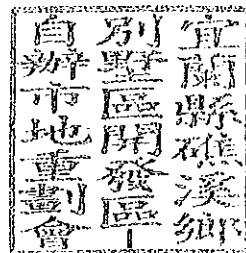 宜蘭縣礁溪鄉
別墅區開發區
自辦市地重劃會